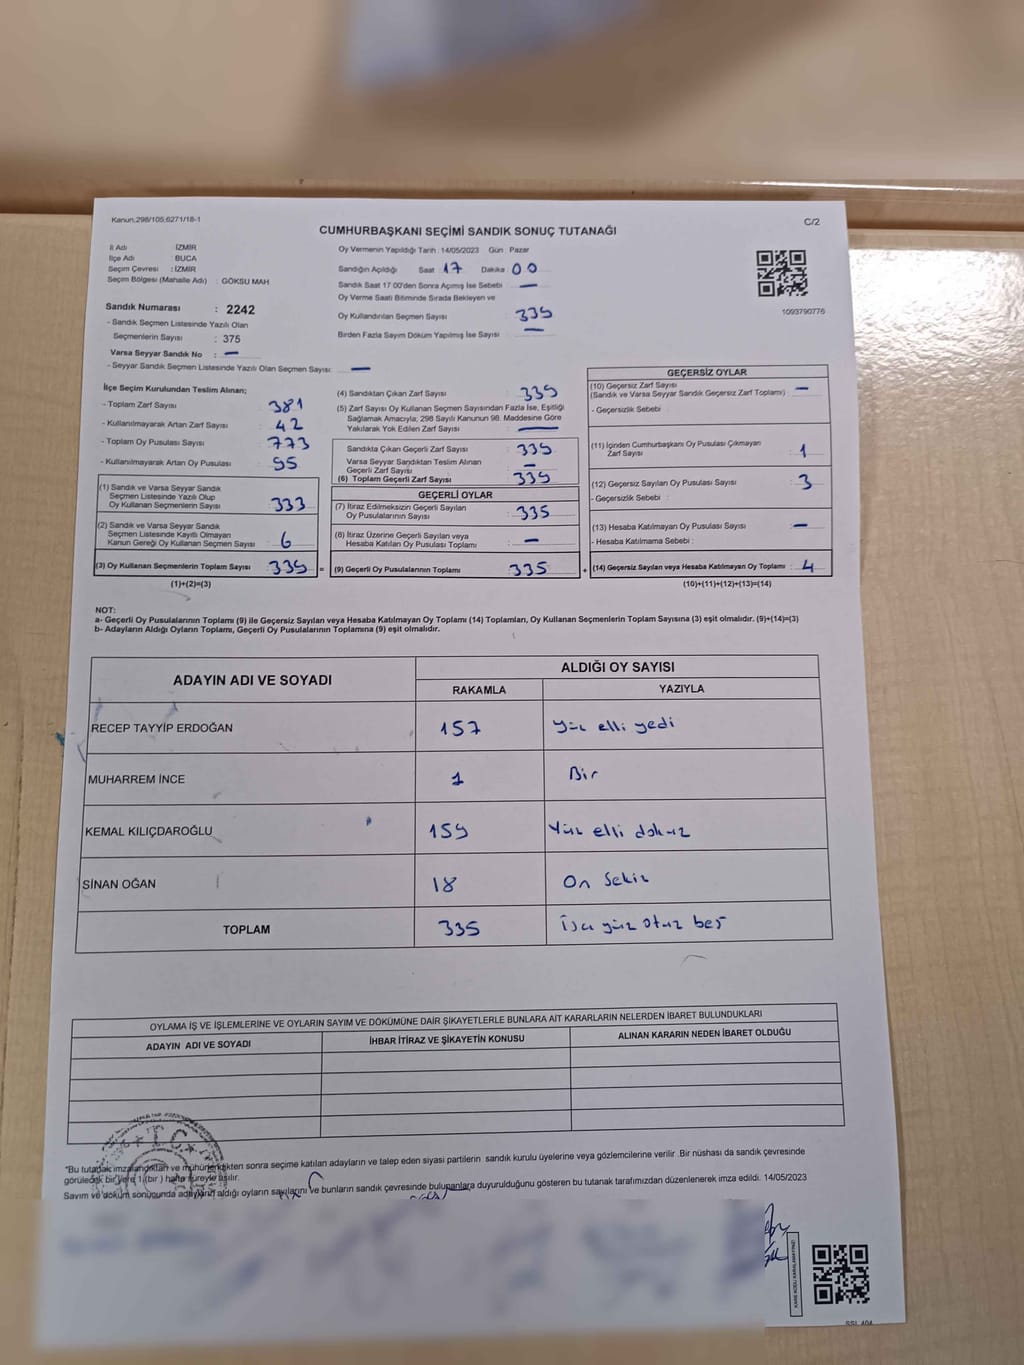 Kanun:298/105;6271/18-1
C/2
CUMHURBAŞKANI SEÇİMİ SANDIK SONUÇ TUTANAĞI
İl Adı : İZMİR
İlçe Adı : BUCA
Seçim Çevresi : İZMİR
Seçim Bölgesi (Mahalle Adı) : GÖKSU MAH
Sandık Numarası : 2242
- Sandık Seçmen Listesinde Yazılı Olan
Seçmenlerin Sayısı : 375
Varsa Seyyar Sandık No : —
- Seyyar Sandık Seçmen Listesinde Yazılı Olan Seçmen Sayısı: —
Oy Vermenin Yapıldığı Tarih : 14/05/2023 Gün : Pazar
Sandığın Açıldığı Saat 17 Dakika 00
Sandık Saat 17:00'den Sonra Açımış İse Sebebi : —
Oy Verme Saati Bitiminde Sırada Bekleyen ve
Oy Kullandırılan Seçmen Sayısı : 339
Birden Fazla Sayım Döküm Yapılmış İse Sayısı : —
1093790776
İlçe Seçim Kurulundan Teslim Alınan;
- Toplam Zarf Sayısı : 381
- Kullanılmayarak Artan Zarf Sayısı : 42
- Toplam Oy Pusulası Sayısı : 773
- Kullanılmayarak Artan Oy Pusulası
(1) Sandık ve Varsa Seyyar Sandık
Seçmen Listesinde Yazılı Olup
Oy Kullanan Seçmenlerin Sayısı : 333
(2) Sandık ve Varsa Seyyar Sandık
Seçmen Listesinde Kayıtlı Olmayan
Kanun Gereği Oy Kullanan Seçmen Sayısı : 6
(3) Oy Kullanan Seçmenlerin Toplam Sayısı : 339 =
(1)+(2)=(3)
(4) Sandıktan Çıkan Zarf Sayısı : 339
(5) Zarf Sayısı Oy Kullanan Seçmen Sayısından Fazla İse, Eşitliği
Sağlamak Amacıyla; 298 Sayılı Kanunun 98. Maddesine Göre
Yakılarak Yok Edilen Zarf Sayısı : —
Sandıkta Çıkan Geçerli Zarf Sayısı : 339
Varsa Seyyar Sandıktan Teslim Alınan
Geçerli Zarf Sayısı : —
(6) Toplam Geçerli Zarf Sayısı : 339
GEÇERLİ OYLAR
(7) İtiraz Edilmeksizin Geçerli Sayılan
Oy Pusulalarının Sayısı : 335
(8) İtiraz Üzerine Geçerli Sayılan veya
Hesaba Katılan Oy Pusulası Toplamı : —
(9) Geçerli Oy Pusulalarının Toplamı : 335 +
GEÇERSİZ OYLAR
(10) Geçersiz Zarf Sayısı : —
(Sandık ve Varsa Seyyar Sandık Geçersiz Zarf Toplamı)
- Geçersizlik Sebebi :
(11) İçinden Cumhurbaşkanı Oy Pusulası Çıkmayan
Zarf Sayısı : 1
(12) Geçersiz Sayılan Oy Pusulası Sayısı : 3
- Geçersizlik Sebebi :
(13) Hesaba Katılmayan Oy Pusulası Sayısı : —
- Hesaba Katılmama Sebebi :
(14) Geçersiz Sayılan veya Hesaba Katılmayan Oy Toplamı : 4
(10)+(11)+(12)+(13)=(14)
NOT:
a- Geçerli Oy Pusulalarının Toplamı (9) ile Geçersiz Sayılan veya Hesaba Katılmayan Oy Toplamı (14) Toplamları, Oy Kullanan Seçmenlerin Toplam Sayısına (3) eşit olmalıdır. (9)+(14)=(3)
b- Adayların Aldığı Oyların Toplamı, Geçerli Oy Pusulalarının Toplamına (9) eşit olmalıdır.
ADAYIN ADI VE SOYADI
ALDIĞI OY SAYISI
RAKAMLA YAZIYLA
RECEP TAYYİP ERDOĞAN 157 Yüz elli yedi
MUHARREM İNCE 1 Bir
KEMAL KILIÇDAROĞLU 159 Yüz elli dokuz
SİNAN OĞAN 18 On Sekiz
TOPLAM 335 yüz otuz beş
OYLAMA İŞ VE İŞLEMLERİNE VE OYLARIN SAYIM VE DÖKÜMÜNE DAİR ŞİKAYETLERLE BUNLARA AİT KARARLARIN NELERDEN İBARET BULUNDUKLARI
ADAYIN ADI VE SOYADI İHBAR İTİRAZ VE ŞİKAYETİN KONUSU ALINAN KARARIN NEDEN İBARET OLDUĞU
T.C.
"Bu tutanak imzalandıktan ve mühürlendikten sonra seçime katılan adayların ve talep eden siyasi partilerin sandık kurulu üyelerine veya gözlemcilerine verilir .Bir nüshası da sandık çevresinde
görülecek bir yere 1 (bir ) hafta süreyle asılır.
Sayım ve döküm sonucunda adayların aldığı oyların sayılarını ve bunların sandık çevresinde bulunanlara duyurulduğunu gösteren bu tutanak tarafımızdan düzenlenerek imza edildi. 14/05/2023
KARE KODU KARALAMAYINIZ!